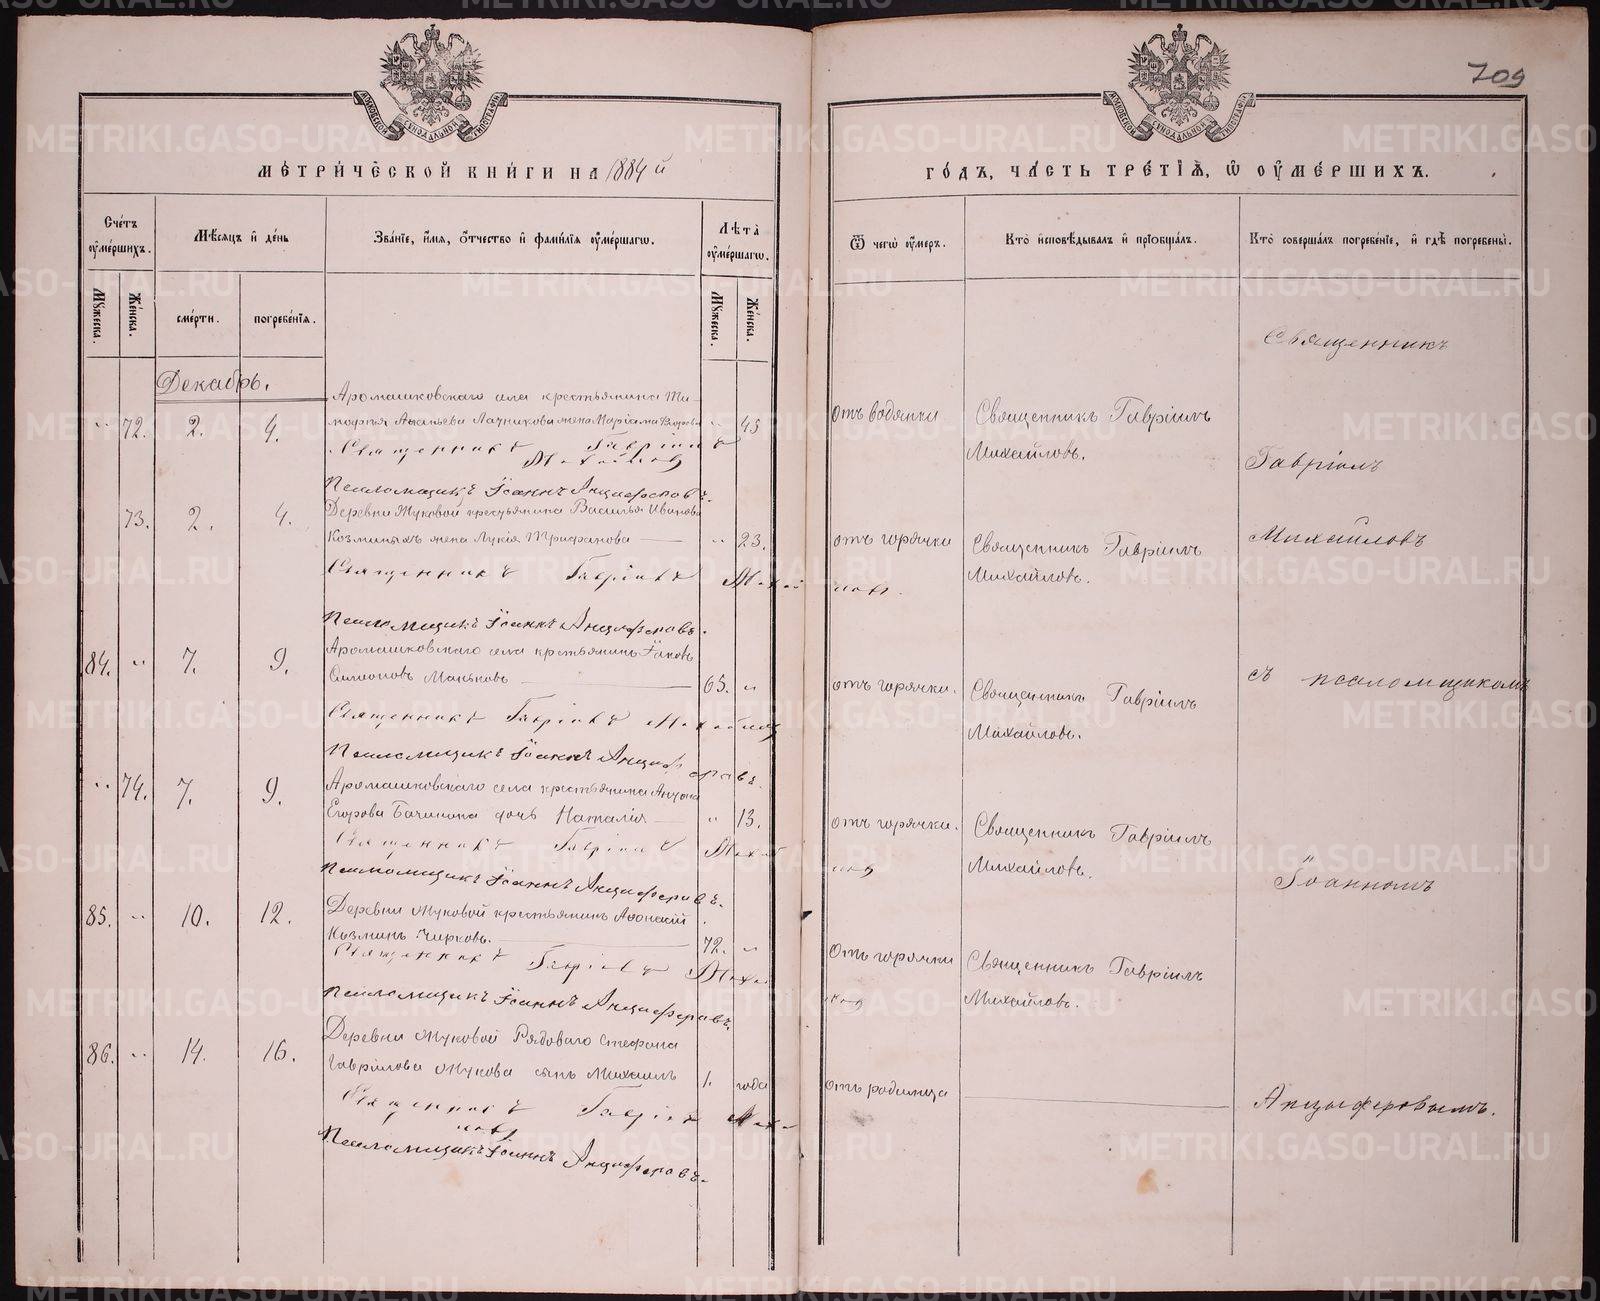 709
МЕТРИЧЕСКОЙ КНИГИ НА 1884 й
ГОДЪ, ЧАСТЬ ТРЕТІЯ, Ѿ ОУМЕРШИХЪ.
Счетъ оумершихъ.
Мѣсяцъ и день
Званіе, имя, отчество и фамилія оумершагѡ.
Лѣта оумершагѡ.
Ѿ чегѡ оумеръ.
Кто исповѣдывалъ и пріобщалъ.
Кто совершалъ погребеніе, и гдѣ погребены.
Мужеска.
Женска.
смерти.
погребенія.
Мужеска.
Женска.
Декабрь.
Аромашковскаго села крестьянина Ти-
72. 2. 4. мофея Лачникова жена Марія Егорова 45 отъ водянки Священникъ Гавріилъ
Михайловъ.
Священникъ Гавріилъ
Михайловъ
Псаломщикъ Іоаннъ Анциферовъ.
Деревни Жуковой крестьянина Василья Иванова
73. 2. 4. Козминыхъ жена Лукія Трифанова 23. отъ горячки Священникъ Гавріилъ
Михайловъ.
Священникъ Гавріилъ Михайловъ.
Псаломщикъ Іоаннъ Анциферовъ.
Аромашковскаго села крестьянинъ Іаковъ
84. 7. 9. Симоновъ Маньковъ 65. отъ горячки. Священникъ Гавріилъ
Михайловъ.
Священникъ Гавріилъ Михайловъ
Псаломщикъ Іоаннъ Анциферовъ.
Аромашковскаго села крестьянина Антона
74. 7. 9. Егорова Бачинина дочь Наталія 13. отъ горячки. Священникъ Гавріилъ
Михайловъ.
Священникъ Гавріилъ Михайловъ
Псаломщикъ Іоаннъ Анциферовъ.
Деревни Жуковой крестьянинъ Афонасій
85. 10. 12. Козминъ Чирковъ. 72. Отъ горячки Священникъ Гавріилъ
Михайловъ.
Священникъ Гавріилъ Михайловъ
Псаломщикъ Іоаннъ Анциферовъ.
Деревни Жуковой Рядоваго Стефана
86. 14. 16. Гаврилова Жукова сынъ Михаилъ 1. года отъ родимца
Священникъ Гавріилъ Михайловъ
Псаломщикъ Іоаннъ Анциферовъ.
Священникъ
Гавріилъ
Михайловъ
съ псаломщикомъ
Іоанномъ
Анциферовымъ.
МОСКОВСКОЙ СУНОДАЛЬНОЙ ТИПОГРАФІИ
МОСКОВСКОЙ СУНОДАЛЬНОЙ ТИПОГРАФІИ
METRIKI.GASO-URAL.RU